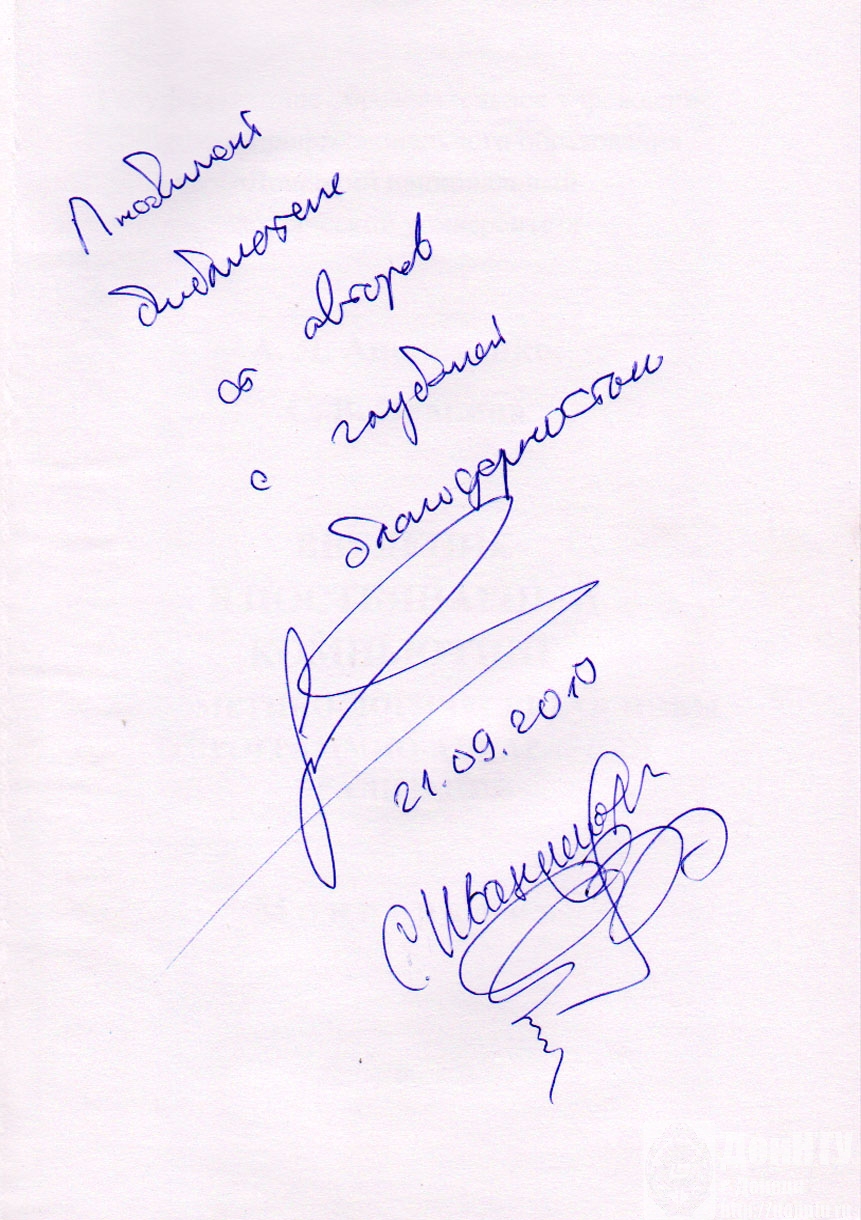 Любимой
библиотеке
от авторов
с глубокой
благодарностью
21.09.2010
С. Иванилова